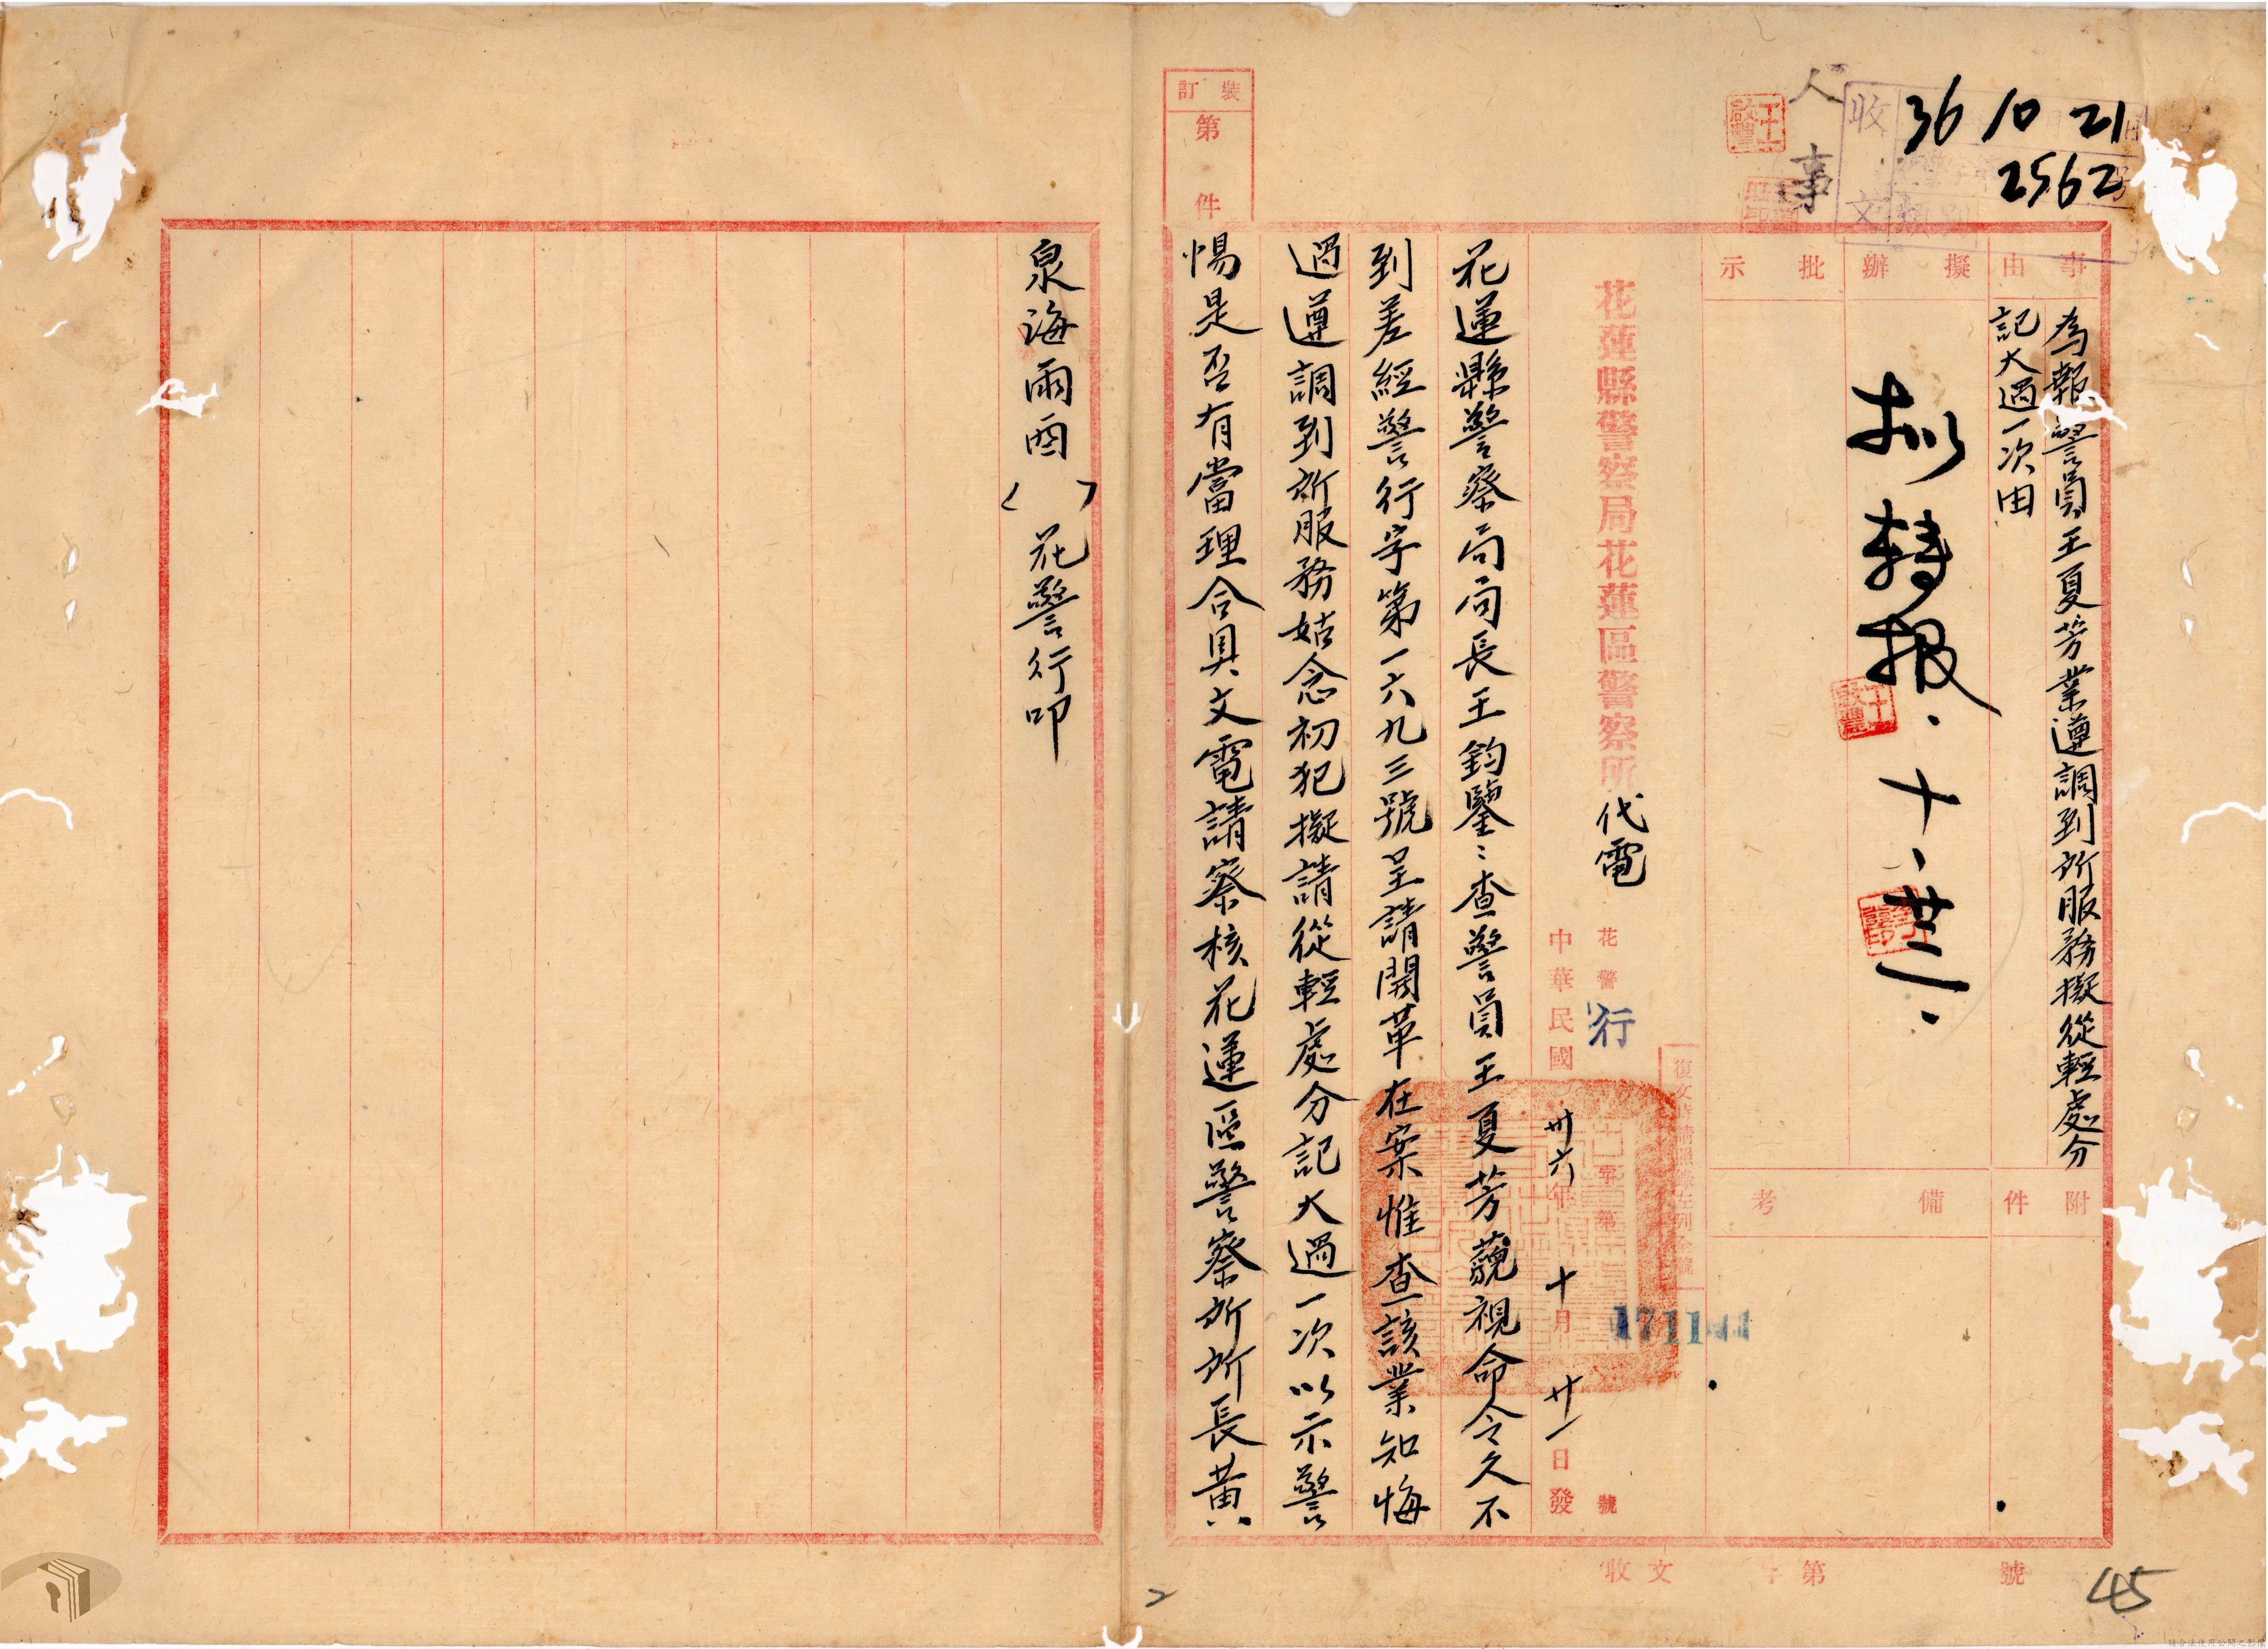 36 10 21
2562
收文
類別
人事
事由
為報警員王夏芳業遵調到所服務擬從輕處分
記大過一次由
擬辦
批示
拟轉报.十、廿二.
附件
備考
花蓮縣警察局花蓮區警察所代電
花警行字第號
1711
中華民國卅六年十月廿一日發
花蓮縣警察局局長王鈞鑒：查警員王夏芳藐視命令久不
到差經警行字第一六九三號呈請開革在案惟查該業知悔
過遵調到所服務姑念初犯擬請從輕處分記大過一次以示警
惕是否有當理合具文電請察核花蓮區警察所所長黃
裝訂
第件
泉海兩酉（ ）花警行叩
收文字第號
45
2